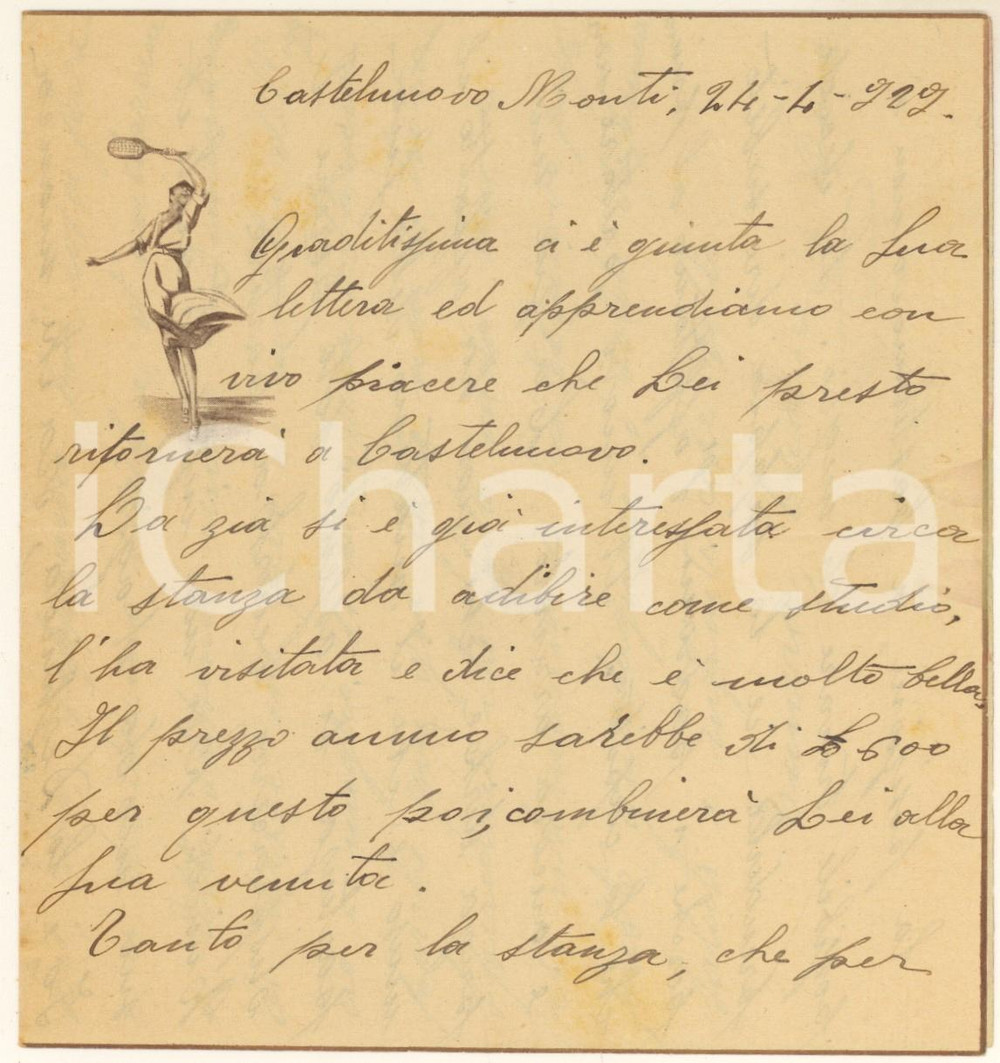 Castelnuovo Monti, 24-4-929.
Graditissima ci è giunta la Sua
lettera ed apprendiamo con
vivo piacere che Lei presto
ritornerà a Castelnuovo.
La zia si è già interessata circa
la stanza da adibire come studio,
l'ha visitata e dice che è molto bella,
Il prezzo annuo sarebbe di £ 600
per questo poi, combinerà Lei alla
Sua venuta.
Tanto per la stanza, che per
iCharta